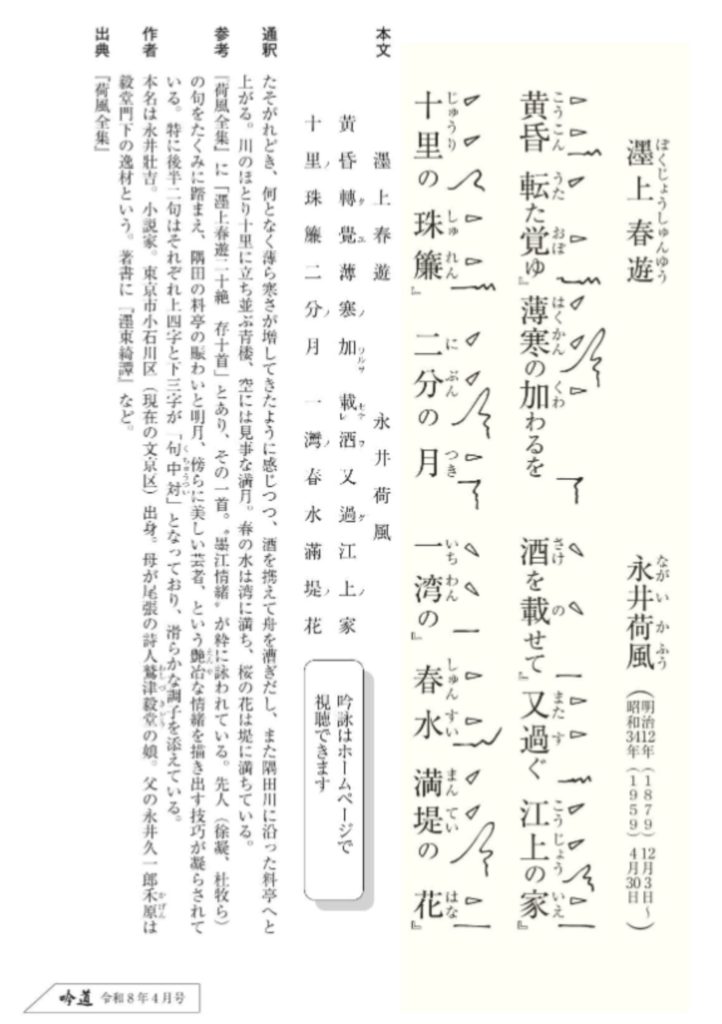 濹上春遊
ぼくじょうしゅんゆう
永井荷風
ながいかふう
（明治12年（1879）12月3日～
昭和34年（1959）4月30日）
黄昏 転た覚ゆ』薄寒の加わるを 酒を載せて』又過ぐ 江上の家』
こうこん うた おぼ はくかん くわ さけ の また す こうじょう いえ
十里の 珠簾』 二分の 月 一湾の』 春水 満堤の 花』
じゅうり しゅれん に ぶん つき いちわん しゅんすい まんてい はな
本文
濹上春遊 永井荷風
黃昏轉覺薄寒加 載酒又過江上家
十里珠簾二分月 一灣春水滿堤花
吟詠はホームページで
視聴できます
通釈
たそがれどき、何となく薄ら寒さが増してきたように感じつつ、酒を携えて舟を漕ぎだし、また隅田川に沿った料亭へと
上がる。川のほとり十里に立ち並ぶ青楼、空には見事な満月。春の水は湾に満ち、桜の花は堤に満ちている。
参考
『荷風全集』に「濹上春遊二十絶 存十首」とあり、その一首。〝墨江情緒〟が粋に詠われている。先人（徐凝、杜牧ら）
の句をたくみに踏まえ、隅田の料亭の賑わいと明月、傍らに美しい芸者、という艶冶な情緒を描き出す技巧が凝らされて
えんや
いる。特に後半二句はそれぞれ上四字と下三字が「句中対」となっており、滑らかな調子を添えている。
くちゅうつい
作者
本名は永井壮吉。小説家。東京市小石川区（現在の文京区）出身。母が尾張の詩人鷲津毅堂の娘。父の永井久一郎禾原は
わしづきどう
かげん
毅堂門下の逸材という。著書に『濹東綺譚』など。
出典
『荷風全集』
吟道 令和8年4月号